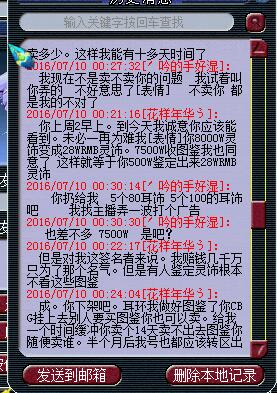 输入关键字按回车查找
卖多少。这样我能有十多天时间了
2016/07/10 00:27:32[ˊ吟的手好湿]:
我现在不是卖不卖的问题 我试着叫
你弄的 不好意思了[表情] 不卖 都
是我的不对了
2016/07/10 00:21:16[花样年华ぅ]:
你上周2早上。到今天我诚意你应该能
看到。未必一再为难我[表情]你8000W灵
饰变成28WRMB灵饰。7500W收图鉴我也同
意了 这样就等于你500W鉴定出来28WRMB
灵饰
2016/07/10 00:30:19[ˊ吟的手好湿]:
你扔给我 5个80耳饰 5个100的耳饰
吧 我找主播弄一波打个广告
2016/07/10 00:30:30[ˊ吟的手好湿]:
也差不多 7500W 是吧?
2016/07/10 00:22:17[花样年华ぅ]:
但是对我这签名者来说。我赔钱几千万
只为了那个名气。但是有人鉴定灵饰根本
不看这些图鉴
2016/07/10 00:24:04[花样年华ぅ]:
成。你下架吧。耳环我做好图鉴了你CB
G挂上去别人要买图鉴你也可以卖。给我
一个时间缓冲你卖个14天卖不出去图鉴你
随便卖谁。半个月后我号也都应该转区出
发送到邮箱
删除本地记录